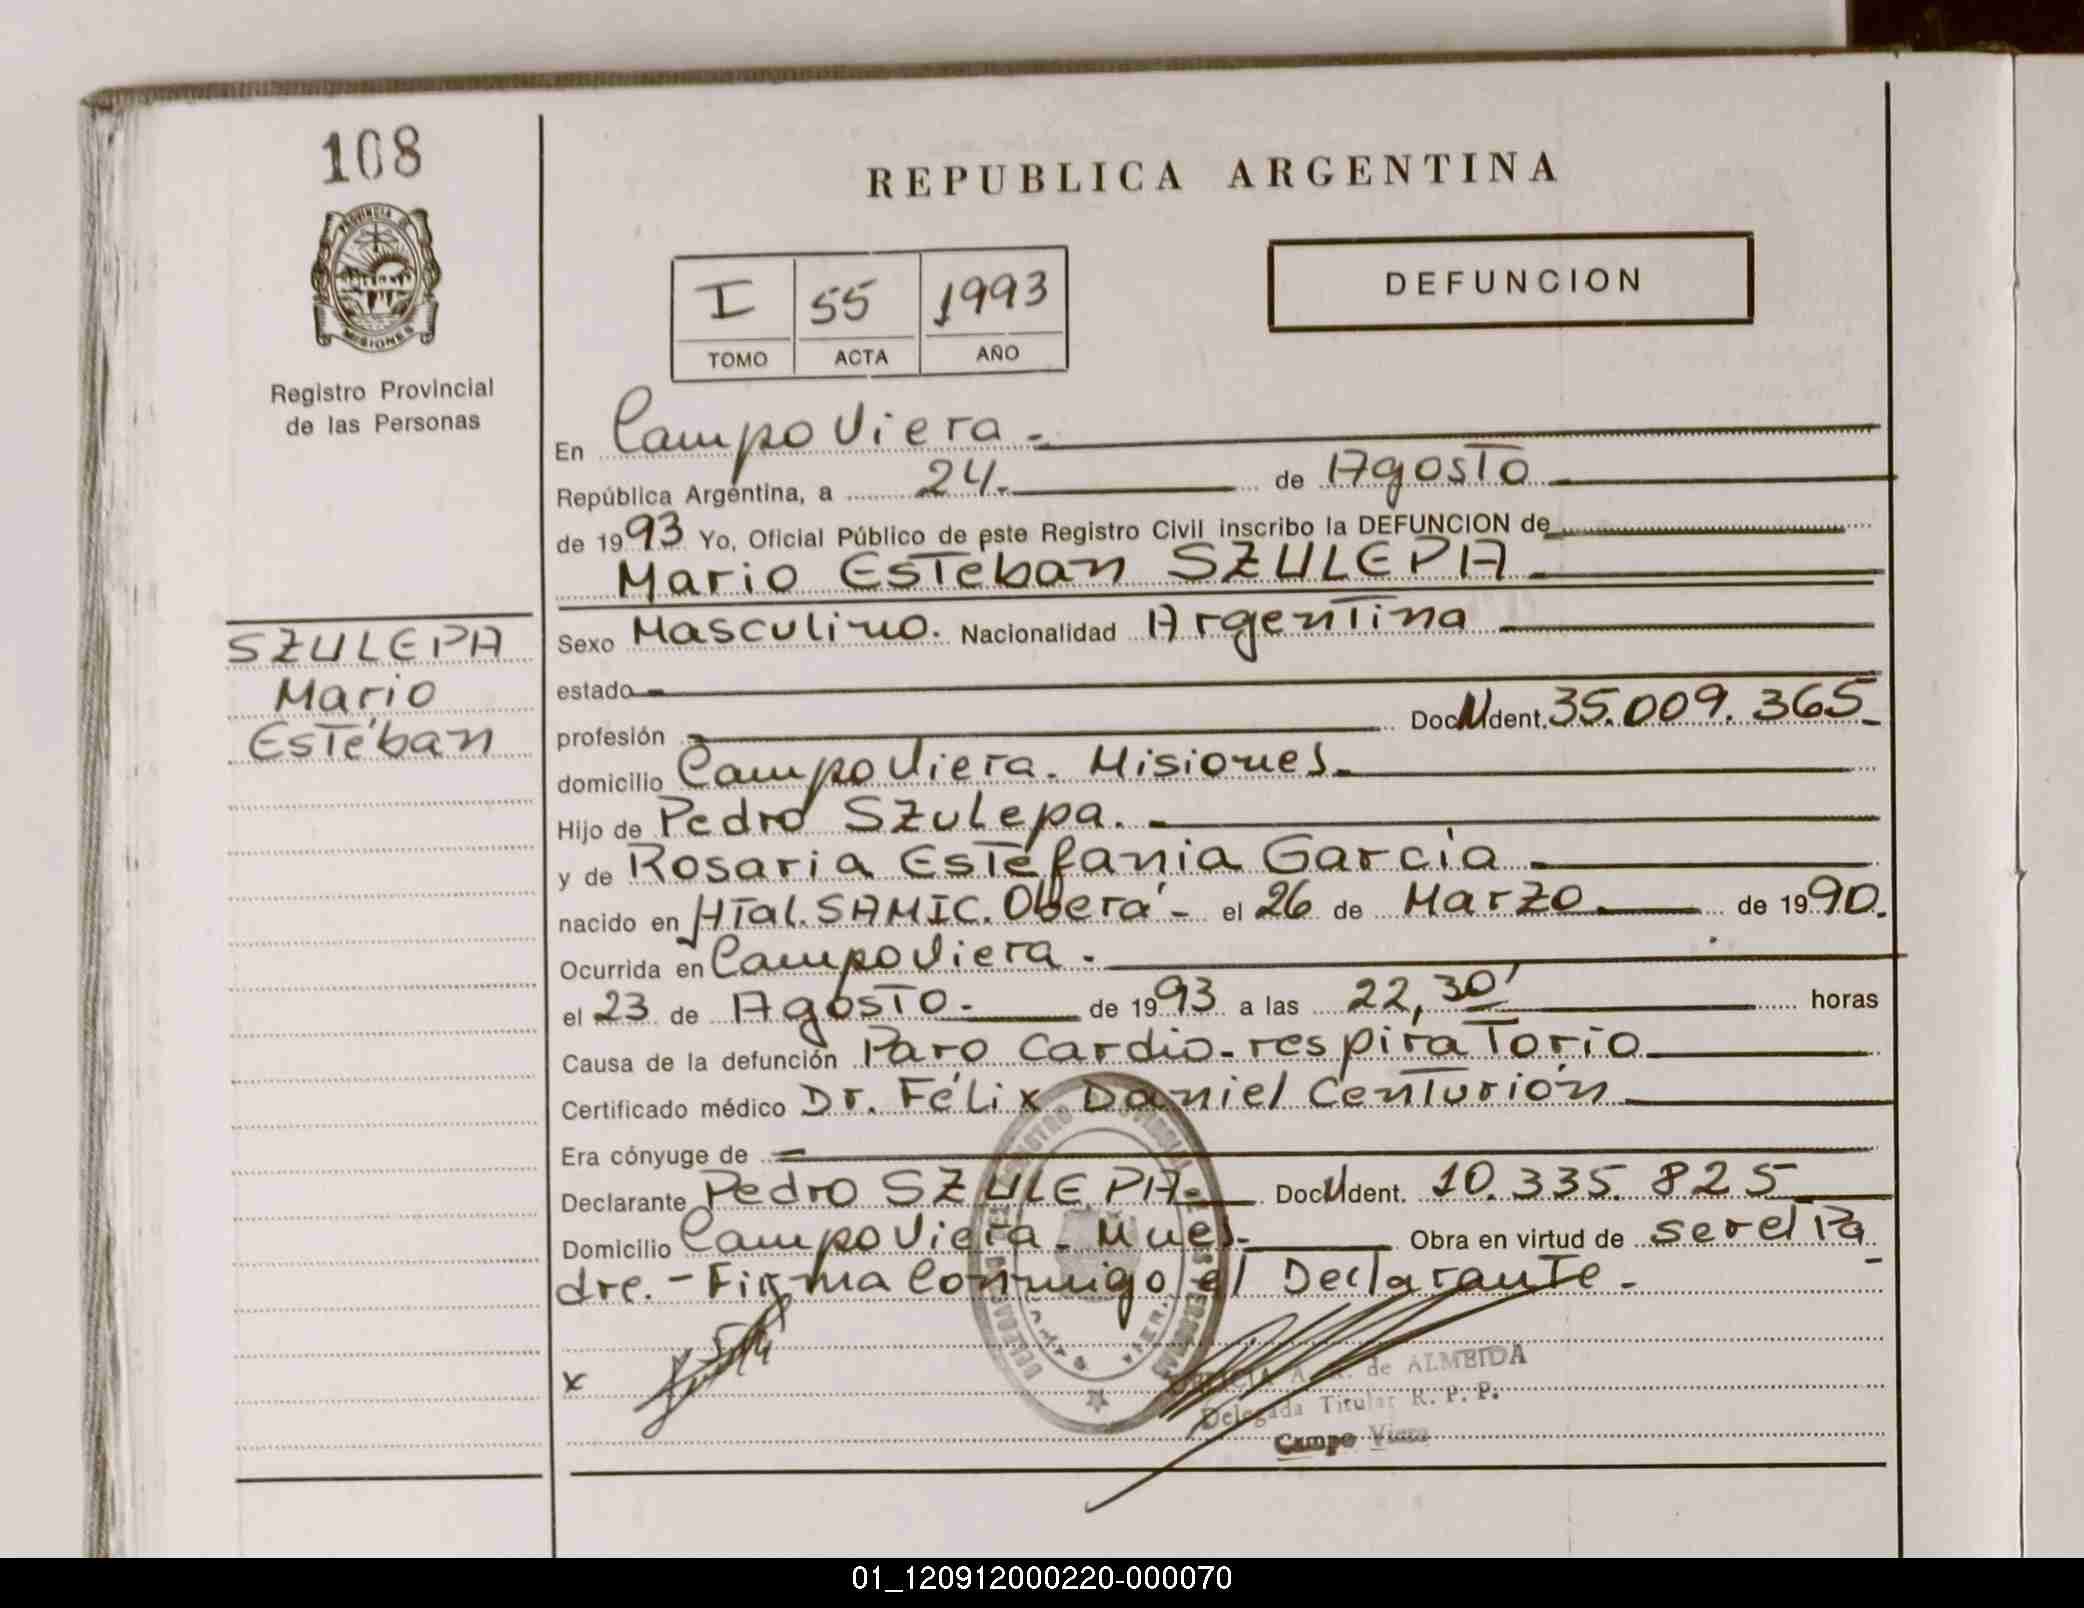 108
PROVINCIA DE
MISIONES
Registro Provincial
de las Personas
SZULEPA
Mario
Esteban
REPUBLICA ARGENTINA
I 55 1993
TOMO ACTA AÑO
DEFUNCION
En Campo Viera.-
República Argentina, a 24.- de Agosto
de 1993 Yo, Oficial Público de este Registro Civil inscribo la DEFUNCION de
Mario Esteban SZULEPA
Sexo Masculino. Nacionalidad Argentina
estado
profesión Doc. U Ident. 35.009.365
domicilio Campo Viera. Misiones.
Hijo de Pedro Szulepa.
y de Rosaria Estefania García
nacido en HTal. SAMIC. Oberá - el 26 de Marzo de 1990.
Ocurrida en Campo Viera.
el 23 de Agosto.- de 1993 a las 22,30' horas
Causa de la defunción Paro Cardio-respiratorio
Certificado médico Dr. Félix Daniel Centurión
Era cónyuge de
Declarante Pedro SZULEPA- Doc. U Ident. 10.335.825
Domicilio Campo Viera - Mnes.- Obra en virtud de ser el Pa
dre.- Firma Conmigo el Declarante.-
x
de ALMEIDA
Delegada Titular R. P. P.
Campo Viera
01_120912000220-000070